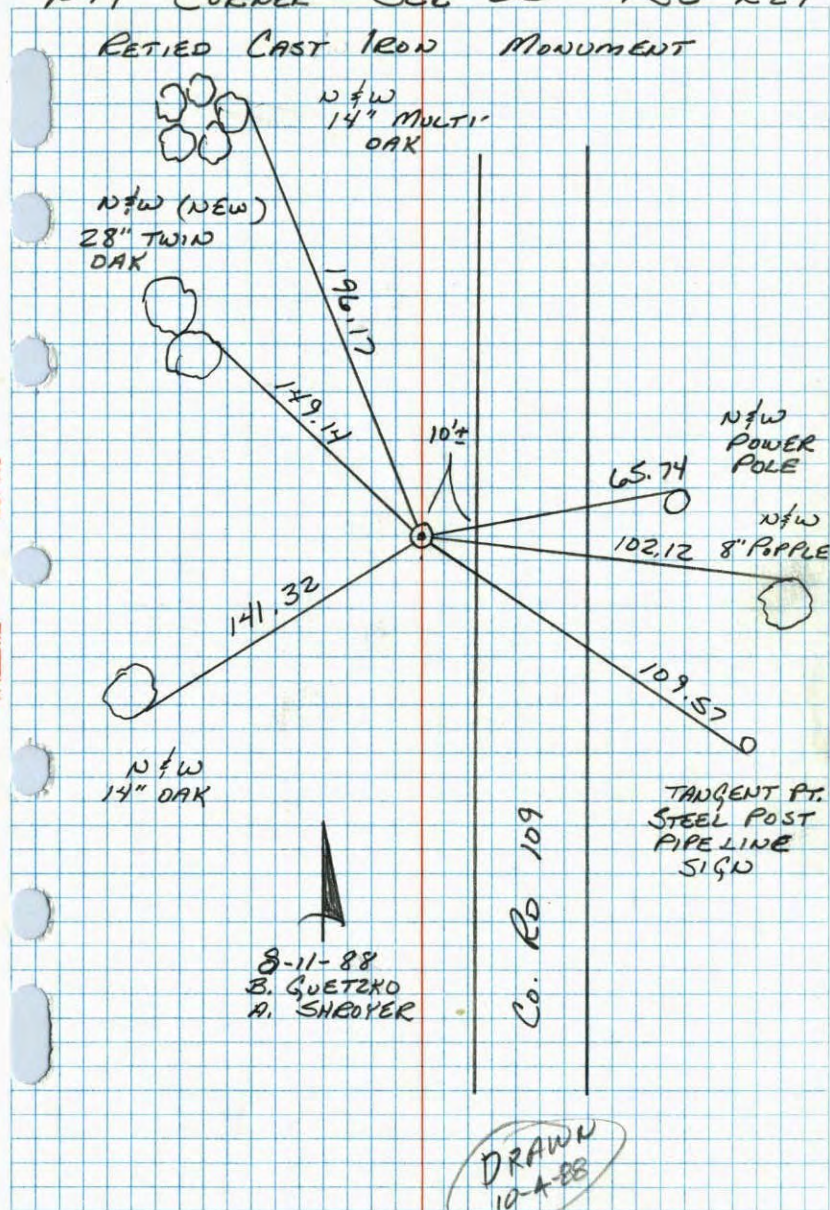 CORNER SEC
RETIED CAST IRON MONUMENT
N & W
14" MULTI-
OAK
N & W (NEW)
28" TWIN
OAK
196.17
149.14
10'±
N & W
POWER
POLE
65.74
N & W
8" POPPLE
102.12
141.32
109.57
N & W
14" OAK
TANGENT PT.
STEEL POST
PIPELINE
SIGN
Co. RD 109
8-11-88
B. GUETZKO
A. SHROYER
DRAWN
10-4-88